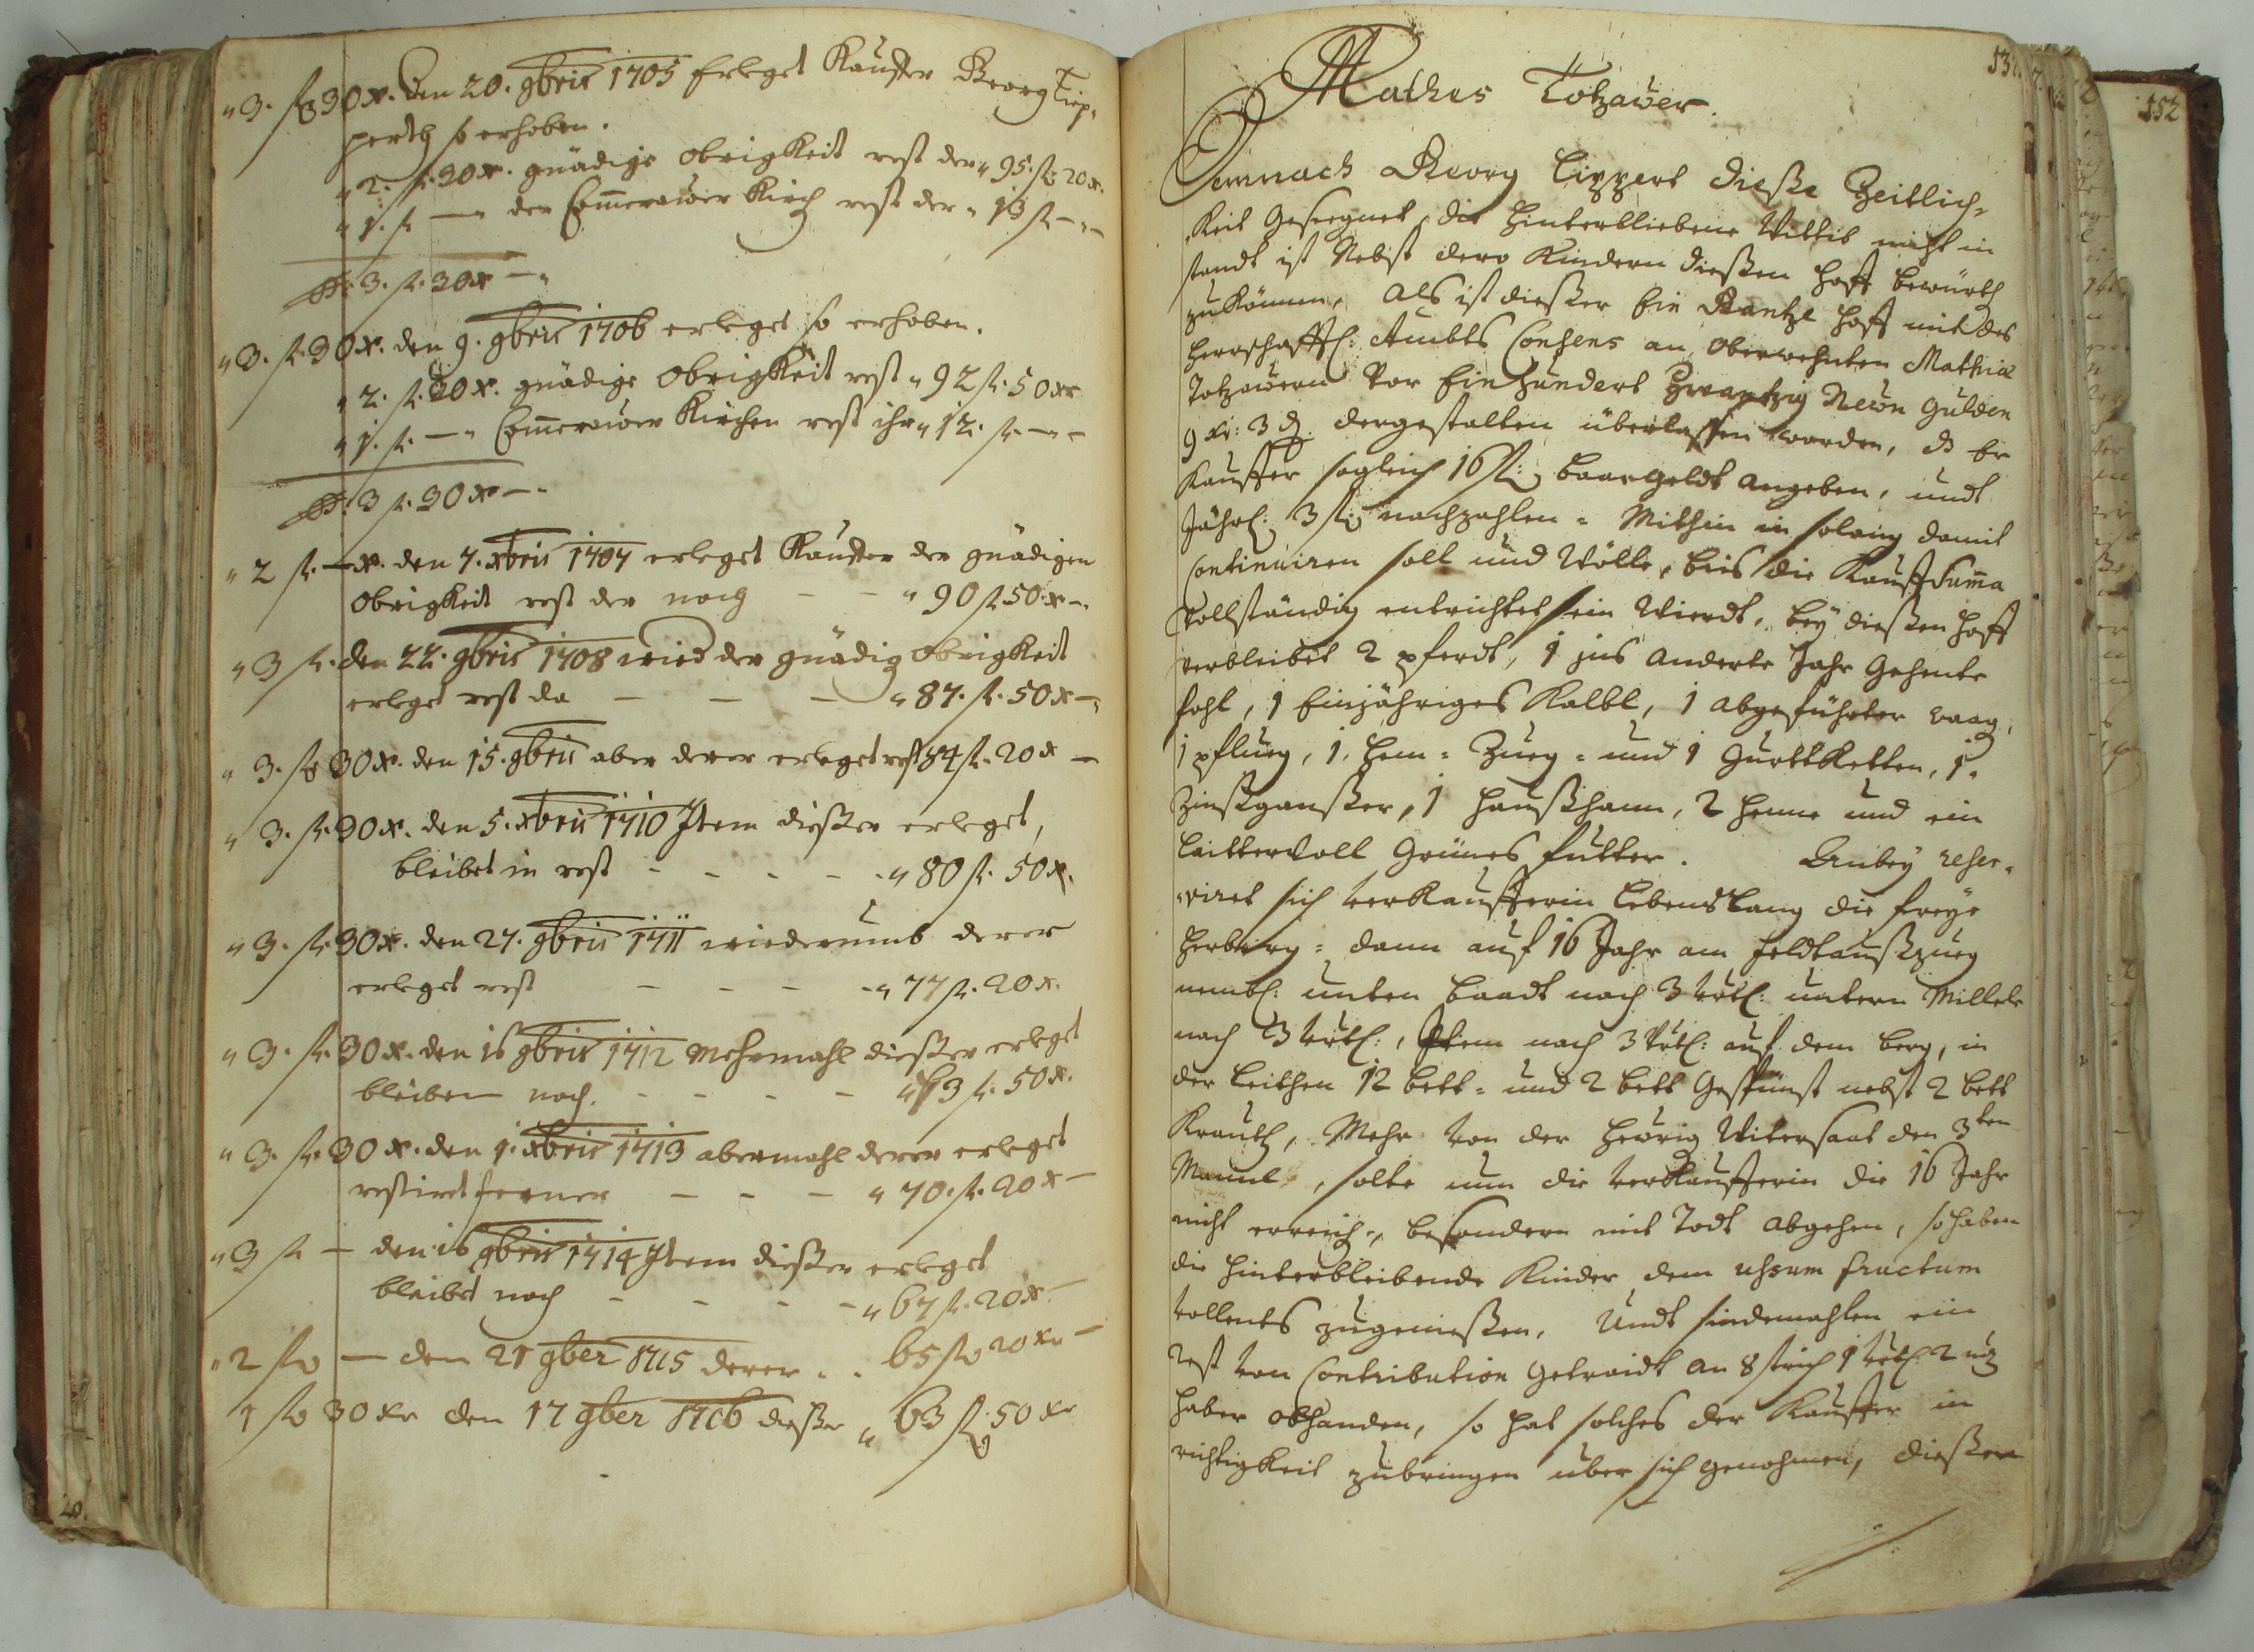 "3. fl 30 x. Den 20. 9bris 1705 Erleget Kauffer Georg Liep-
perth so erhoben.
"2. fl. 30 x. gnädige Obrigkeit rest der "95. fl 20 x.
"1. fl. — " der Commerauer Kirch rest der "13 fl — " —
fl: 3. fl. 30 x — "
"3. fl. 30 x. den 9. 9bris 1706 erleget so erhoben.
"2. fl. 30 x. gnädige Obrigkeit rest "92 fl. 50 xr
"1. fl. — " Commerauer Kirchen rest ihr "12. fl. — " —
fl: 3 fl. 30 x — "
"2 fl. — x. den 7. xbris 1707 erleget Kauffer der gnädigen
Obrigkeit rest der noch — — "90 fl 50 x — "
"3 fl. den 22. 9bris 1708 wird der gnädig Obrigkeit
erleget rest da — — — "87. fl. 50 x — "
"3. fl 30 x. den 15. 9bris aber derer erleget rest 84 fl. 20 x —
"3. fl. 30 x. den 5. xbris 1710 Item dießer erleget,
bleibet in rest - - - - - "80 fl. 50 x.
"3. fl. 30 x. den 27. 9bris 1711 wiederumb derer
erleget rest — — — - "77 fl. 20 x.
"3. fl. 30 x. den 16 9bris 1712 Mehrmahl dießer erleget
bleiben noch. - - - — "73 fl. 50 x.
"3. fl. 30 x. den 1. xbris 1713 abermahl derer erleget
restiret ferner — - — "70. fl. 20 x —
"3 fl — den 16 9bris 1714 Item dießer erleget
bleibet noch - - - - "67 fl. 20 x —
"2 fl — den 21 9ber 1715 derer . . 65 fl 20 xr —
1 fl 30 xr den 17 9ber 1716 dießer " 63 fl. 50 xr
Mathes Totzauer.
152
Demnach Georg Lippert dieße Zeitlich-
keit Geseegnet, die hinterbliebene Wittib nicht in
standt ist Nebst dero Kindern dießen Hoff bewürth
zu können, Als ist dießer Ein Gantze Hoff mit des
herrschafftl: Ambts Consens an Oberwehnten Mathiæ
Totzauern vor Einhundert Zwantzig Neün Gulden
9 xr: 3 d. dergestalten überlassen worden, ds Er
Kauffer sogleich 16 fl: baar Geldt angeben, undt
Jährl: 3 fl: nachzahlen = Mithin in solang damit
Continuiren soll und Wölle, bies die Kauff Suma
vollständig entrichtet sein Wierdt, bey dießen Hoff
verbleibet 2 pferdt, 1 ins Anderte Jahr Gehente
fohl, 1 Einjähriges Kalbl, 1 abgeführter waag,
1 pflueg, 1. Hem = Zueg = und 1 Gurttketten, 1.
Zinßganßer, 1 Haußhann, 2 Henne und ein
Laittervoll Grünes Futter. Anbey reser-
viret sich Verkaufferin Lebenslang die freye
Herberg = dann auf 16 Jahr am Feldtaußzueg
nembl: unten Baadt nach 3 vrtl: untern Mittelr
nach 3 vrtl:, Item nach 3 vrtl: auf dem berg, in
der Leithen 12 bett = und 2 bett Gespünst nebst 2 bett
Krauth, Mehr von der heürig Wintersaat den 3ten
Mannl, solte nun die Verkaufferin die 16 Jahr
nicht erreich-, besondern mit Todt abgehen, so haben
die hinterbleibende Kinder dem ussum fructum
vollents zugenießen. Undt sindemahlen ein
rest von Contribution Getraidt an 8 strich 1 vrtl: 2
Haber obhanden, so hat solches der Kauffer in
richtigkeit zubringen uber sich genohmen, dießer